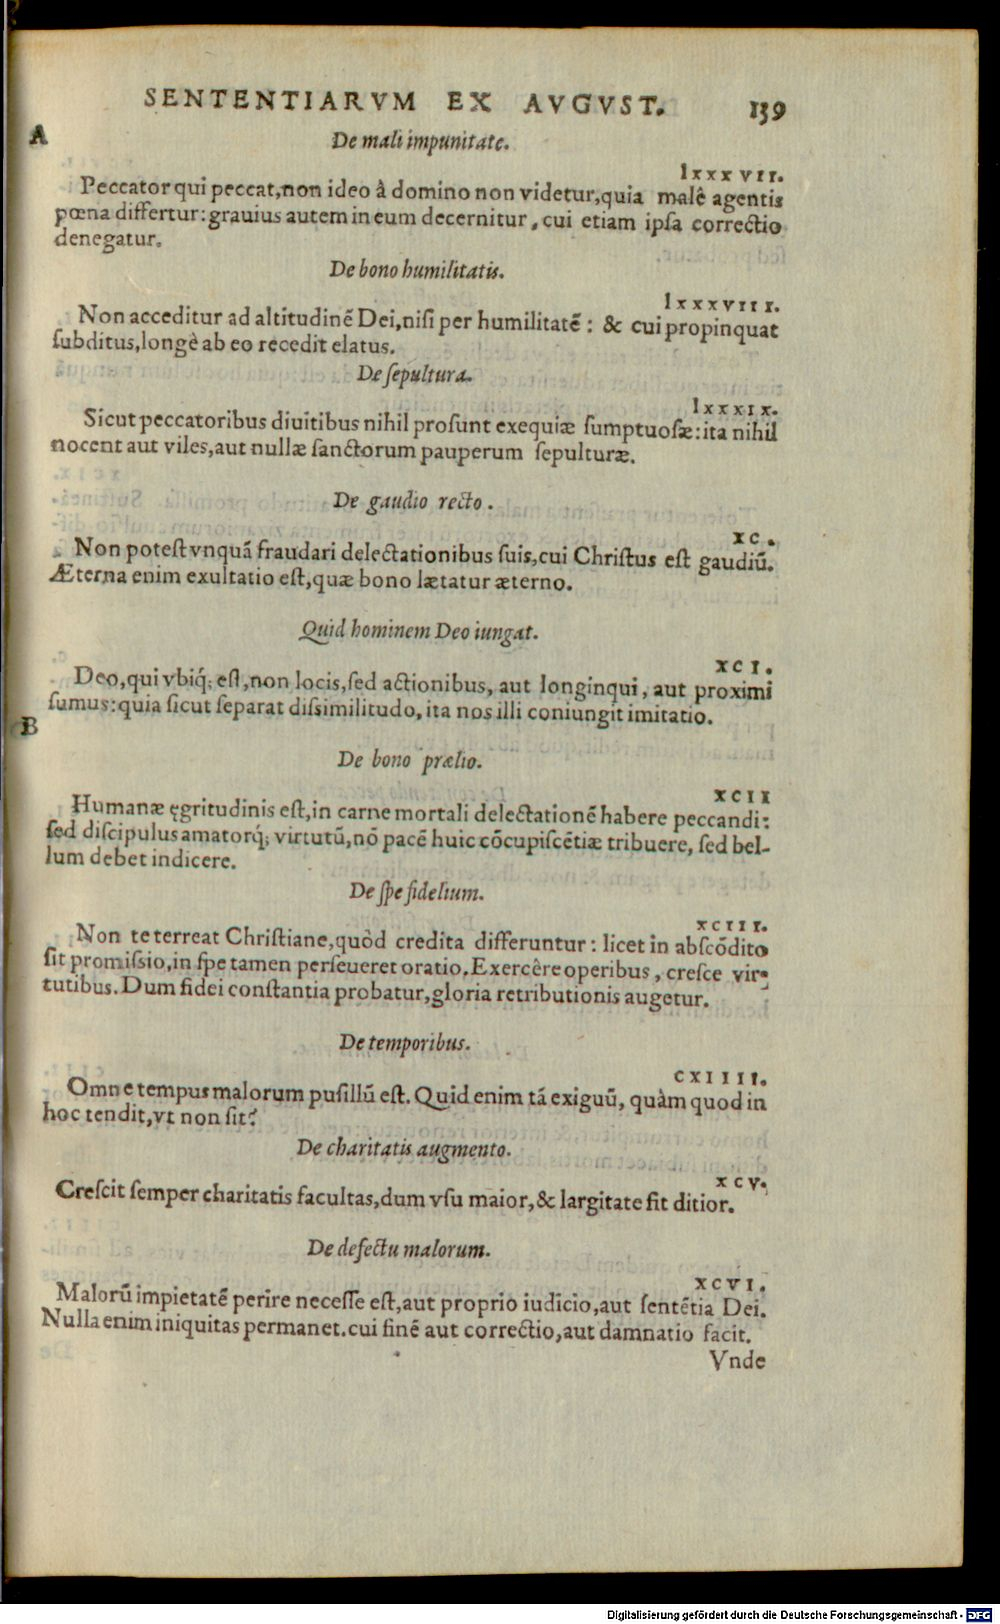 SENTENTIARVM EX AVGVST. 139
A
De mali impunitate.
lxxxvii.
Peccator qui peccat,non ideo à domino non videtur,quia malê agentis
pœna differtur:grauius autem in eum decernitur, cui etiam ipſa correctio
denegatur.
De bono humilitatis.
lxxxviii.
Non acceditur ad altitudinẽ Dei,niſi per humilitatẽ: & cui propinquat
ſubditus,longè ab eo recedit elatus.
De ſepultura.
lxxxix.
Sicut peccatoribus diuitibus nihil proſunt exequiæ ſumptuoſæ:ita nihil
nocent aut viles,aut nullæ ſanctorum pauperum ſepulturæ.
De gaudio recto.
xc.
Non poteſt vnquã fraudari delectationibus ſuis,cui Chriſtus eſt gaudiũ.
Æterna enim exultatio eſt,quæ bono lætatur æterno.
Quid hominem Deo iungat.
xci.
Deo,qui vbiq́; eſt,non locis,ſed actionibus, aut longinqui, aut proximi
ſumus:quia ſicut ſeparat diſsimilitudo, ita nos illi coniungit imitatio.
B
De bono prælio.
xcii
Humanæ ęgritudinis eſt,in carne mortali delectationẽ habere peccandi:
ſed diſcipulus amatorq́; virtutũ,nõ pacẽ huic cõcupiſcẽtiæ tribuere, ſed bel-
lum debet indicere.
De ſpe fidelium.
xciii.
Non te terreat Chriſtiane,quòd credita differuntur: licet in abſcõdito
ſit promiſsio,in ſpe tamen perſeueret oratio.Exercêre operibus, creſce vir-
tutibus.Dum fidei conſtantia probatur,gloria retributionis augetur.
De temporibus.
cxiiii.
Omne tempus malorum puſillũ eſt. Quid enim tã exiguũ, quàm quod in
hoc tendit,vt non ſit?
De charitatis augmento.
xcv.
Creſcit ſemper charitatis facultas,dum vſu maior,& largitate fit ditior.
De defectu malorum.
xcvi.
Malorũ impietatẽ perire neceſſe eſt,aut proprio iudicio,aut ſentẽtia Dei.
Nulla enim iniquitas permanet.cui finẽ aut correctio,aut damnatio facit.
Vnde
Digitalisierung gefördert durch die Deutsche Forschungsgemeinschaft - DFG